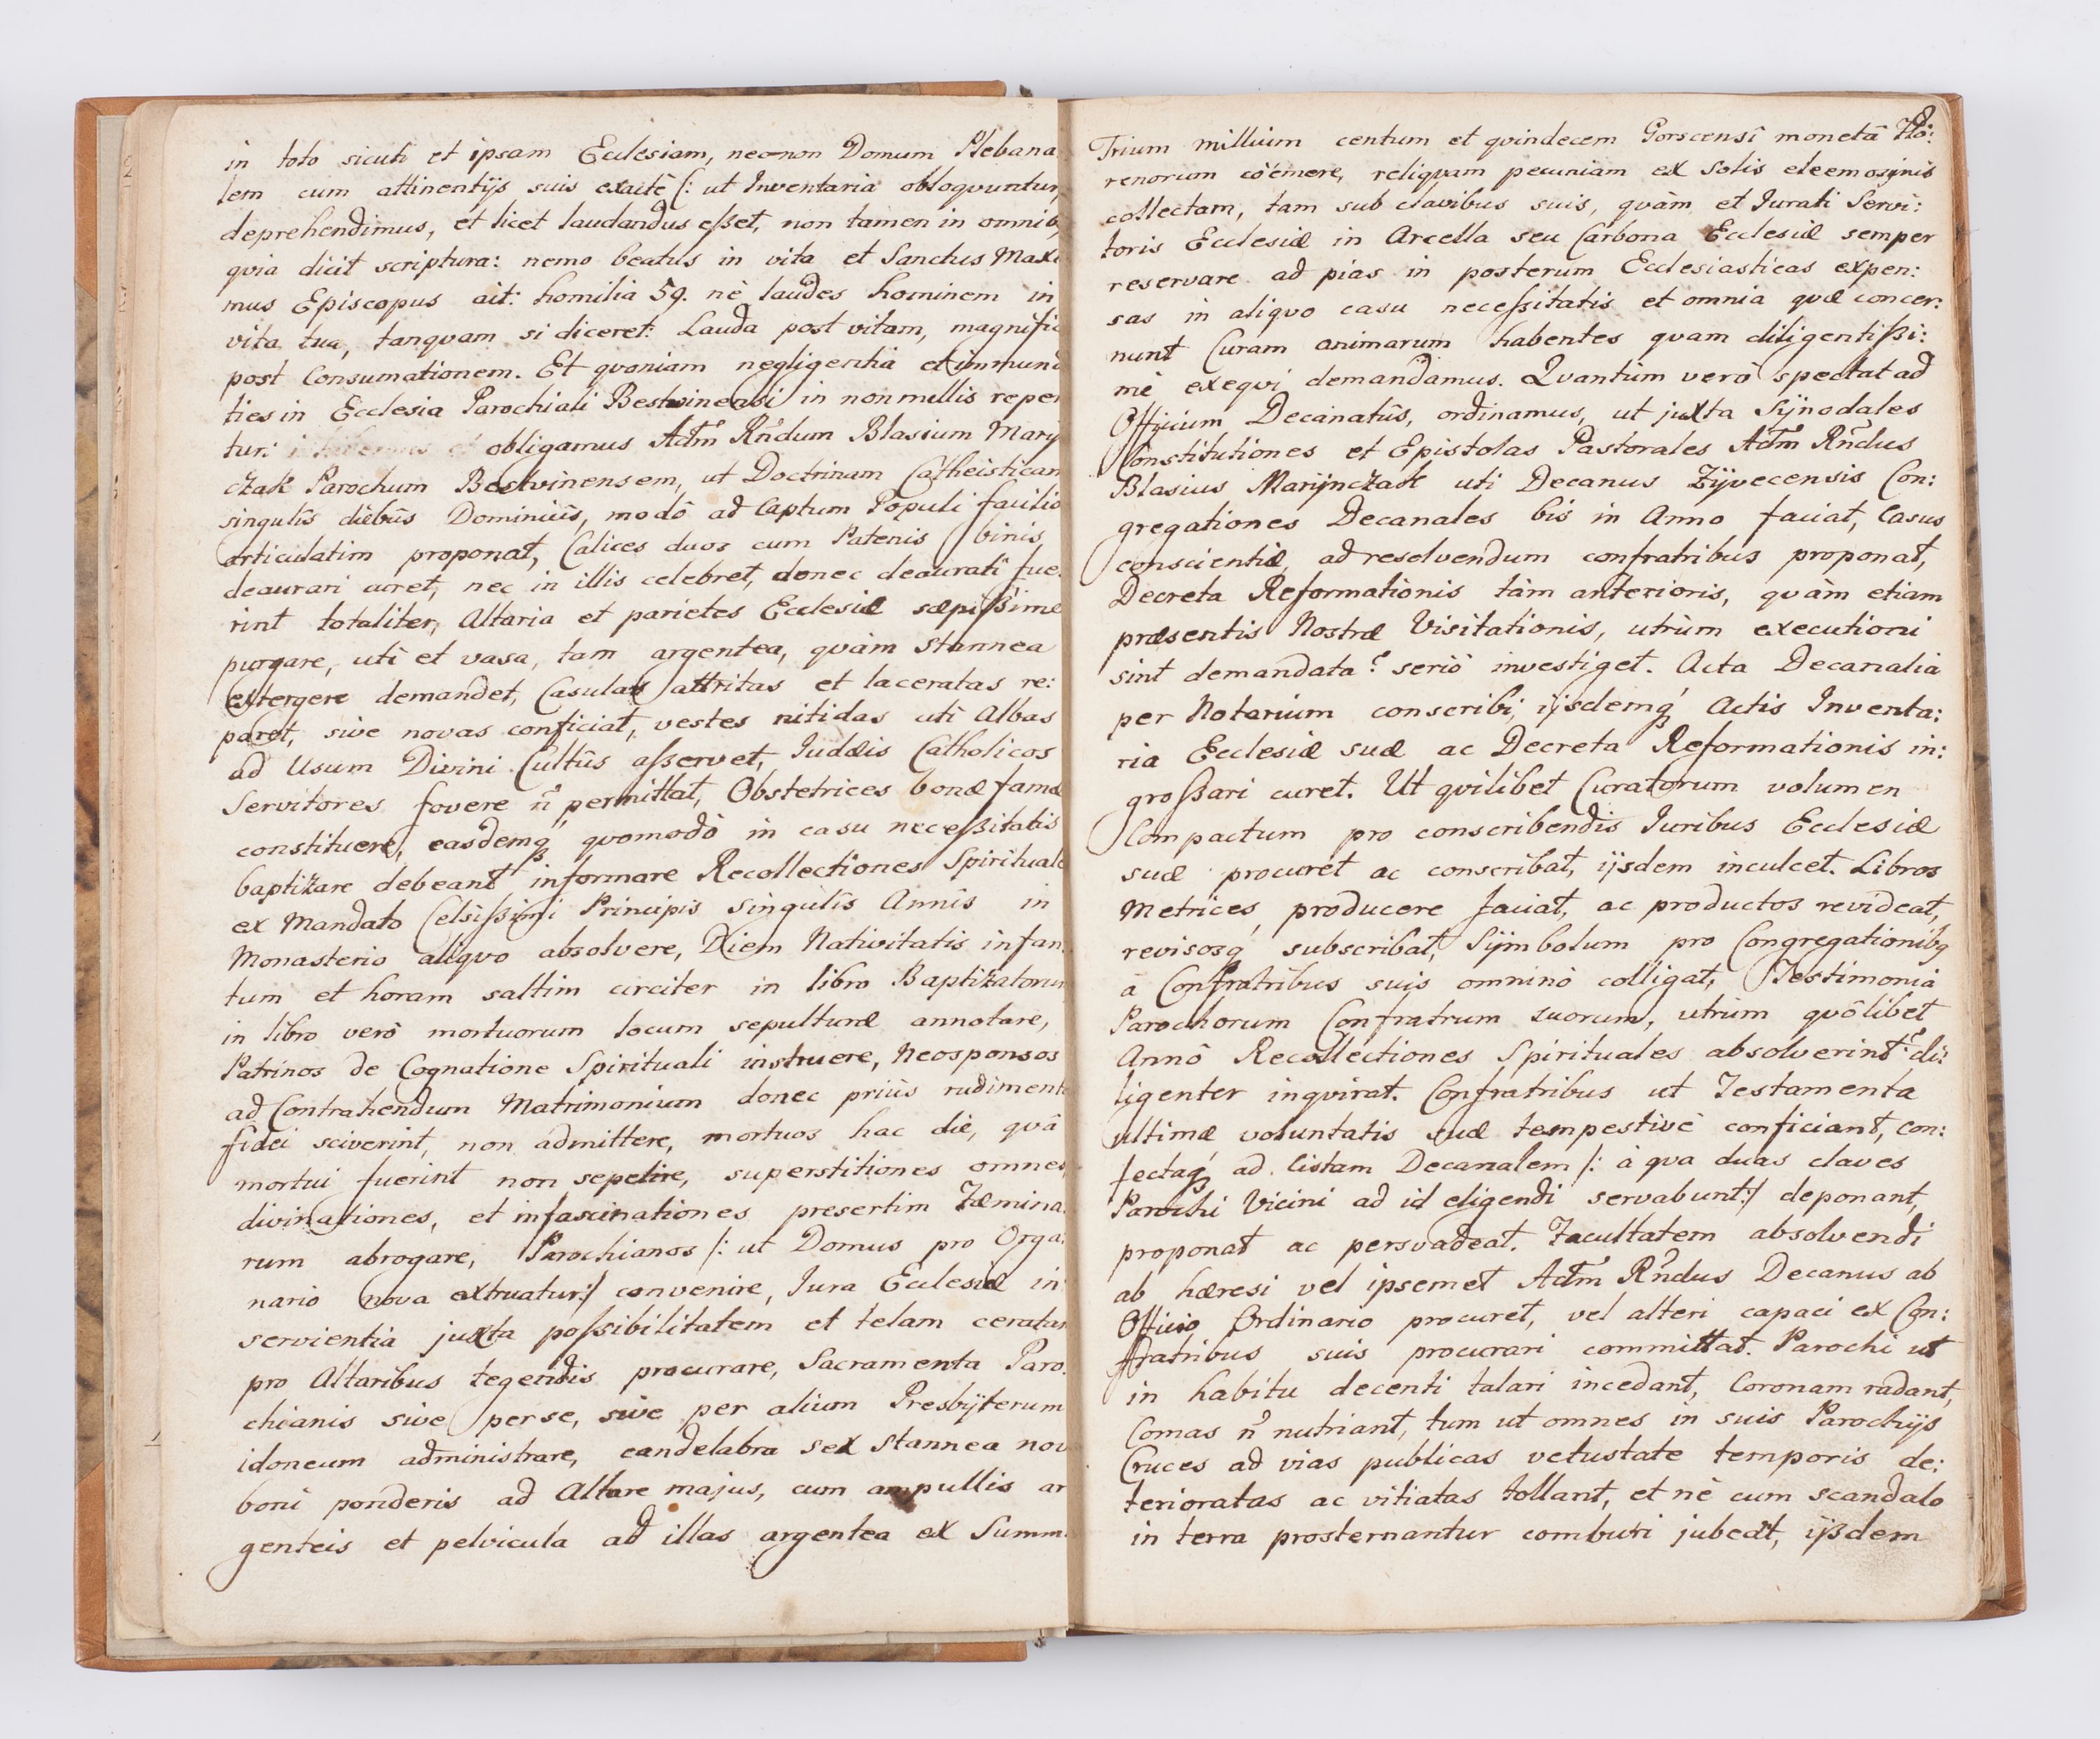 in toto sicuti et ipsam Ecclesiam, necnon Domum Plebana
lem cum attinentijs suis exactè /: ut Inventaria obloquuntur,
deprehendimus, et licet laudandus eſset, non tamen in omnibq
quia dicit scriptura: nemo beatus in vita et Sanctus Maxi
mus Episcopus ait: homilia 59. nè laudes hominem in
vita tua, tanquam si diceret: Lauda post vitam, magnific
post Consumationem. Et quoniam negligentia et immund
ties in Ecclesia Parochiali Bestwinensi in nonnullis reper
tur: obligamus Adm̃ Rñdum Blasium Maryn
czak Parochum Bestvinensem, ut Doctrinam Catheisticam
singulis diebus Dominicis, modô ad Captum Populi facilio
articulatim proponat, Calices duos cum Patenis binis,
deaurari curet, nec in illis celebret, donec deaurati fue
rint totaliter, Altaria et parietes Ecclesiæ sæpiſsime
purgare, uti et vasa, tam argentea, quàm stannea
extergere demandet, Casulas attritas et laceratas re:
paret, sive novas conficiat, vestes nitidas uti Albas
ad Usum Divini Cultûs aſservet, Judæis Catholicos
Servitores fovere ñ permittat, Obstetrices bonæ famæ
constituere, easdemq, quomodò in casu neceſsitatis
baptizare debeant informare Recollectiones Spirituale
ex Mandato Celsiſsimi Principis singulis Annis in
Monasterio aliquo absolvere, Diem Nativitatis infan
tum et horam saltim circiter in libro Baptizatorum
in libro verò mortuorum locum sepulturæ annotare,
Patrinos de Cognatione Spirituali instruere, Neosponsos
ad Contrahendum Matrimonium donec priùs rudimenta
fidei sciverint, non admittere, mortuos hac die, quâ
mortui fuerint non sepelire, superstitiones omnes,
divinationes, et infascinationes presertim Fæmina:
rum abrogare, Parochianos /: ut Domus pro Orga:
nario nova extruatur:/ convenire, Jura Ecclesiæ in
servientia juxta poſsibilitatem et telam ceratam
pro Altaribus tegendis procurare, Sacramenta Paro:
chianis sive per se, sive per alium Presbÿterum
idoneum administrare, candelabra sex stannea nov
boni ponderis ad Altare majus, cum ampullis ar
genteis et pelvicula ad illas argentea ex Summ
8
Trium millium centum et quindecem Gorscensî monetâ Flo:
renorum coëmere, reliquam pecuniam ex solis eleemosynis
collectam, tam sub clavibus suis, quàm et Jurati Servi:
toris Ecclesiæ in Arcella seu Carbona Ecclesiæ semper
reservare ad pias in posterum Ecclesiasticas expen:
sas in aliquo casu neceſsitatis et omnia quæ concer:
nunt Curam animarum habentes quam diligentiſsi:
mè exequi demandamus. Quantùm verò spectat ad
Officium Decanatûs, ordinamus, ut juxta Sÿnodales
Constitutiones et Epistolas Pastorales Adm̃ Rñdus
Blasius Marÿnczak uti Decanus Zÿvecensis Con:
gregationes Decanales bis in Anno faciat, Casus
conscientiæ, ad resolvendum confratribus proponat,
Decreta Reformationis tàm anterioris, quàm etiam
præsentis Nostræ Visitationis, utrùm executioni
sint demandata? seriò investiget. Acta Decanalia
per Notarium conscribi, ijsdemq, Actis Inventa:
ria Ecclesiæ suæ ac Decreta Reformationis in:
groſsari curet. Ut quilibet Curatorum volumen
Compactum pro conscribendis Juribus Ecclesiæ
suæ procuret ac conscribat, ijsdem inculcet. Libros
Metrices, producere faciat, ac productos revideat,
revisosq, subscribat, Sÿmbolum pro Congregationibq
à Confratribus suis omninò colligat, Testimonia
Parochorum Confratrum suorum, utrùm quôlibet
Annô Recollectiones Spirituales absolverint? di:
ligenter inquirat. Confratribus ut Testamenta
ultimæ voluntatis suæ tempestivè conficiant, con:
fectaq, ad Cistam Decanalem /: à qua duas claves
Parochi Vicini ad id eligendi servabunt:/ deponant,
proponat ac persvadeat. Facultatem absolvendi
ab hæresi vel ipsemet Adm̃ Rñdus Decanus ab
Officio Ordinario procuret, vel alteri capaci ex Con:
fratribus suis procurari committat. Parochi ut
in habitu decenti talari incedant, Coronam radant,
Comas ñ nutriant, tum ut omnes in suis Parochijs
Cruces ad vias publicas vetustate temporis de:
terioratas ac vitiatas tollant, et nè cum scandalo
in terra prosternantur comburi jubeat, ijsdem